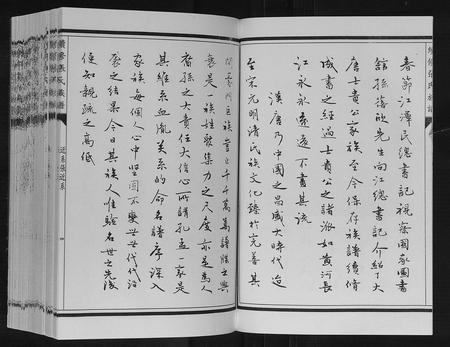 春節江澤民總書記視察國家圖書
館孫蓓欣先生向江總書記介紹了大
唐士貴公家族至今保存族譜續修
成書之經過士貴公之譜派如黃河長
江永永遠遠不盡其流
漢唐乃中國之昌盛大時代迨
至宋元明清氏族文化臻於完善其
巨族豈止千千萬萬譜牒之興
衰是一族姓聚集力之尺度亦是為人
裔孫之大責任大信心所謂孔孟家是
其維系血胤關系的命名譜序深入
家族每個人心中堅固不變世世代代沿
襲之結果今日其族人惟驗名世之先後
便知親疏之高低